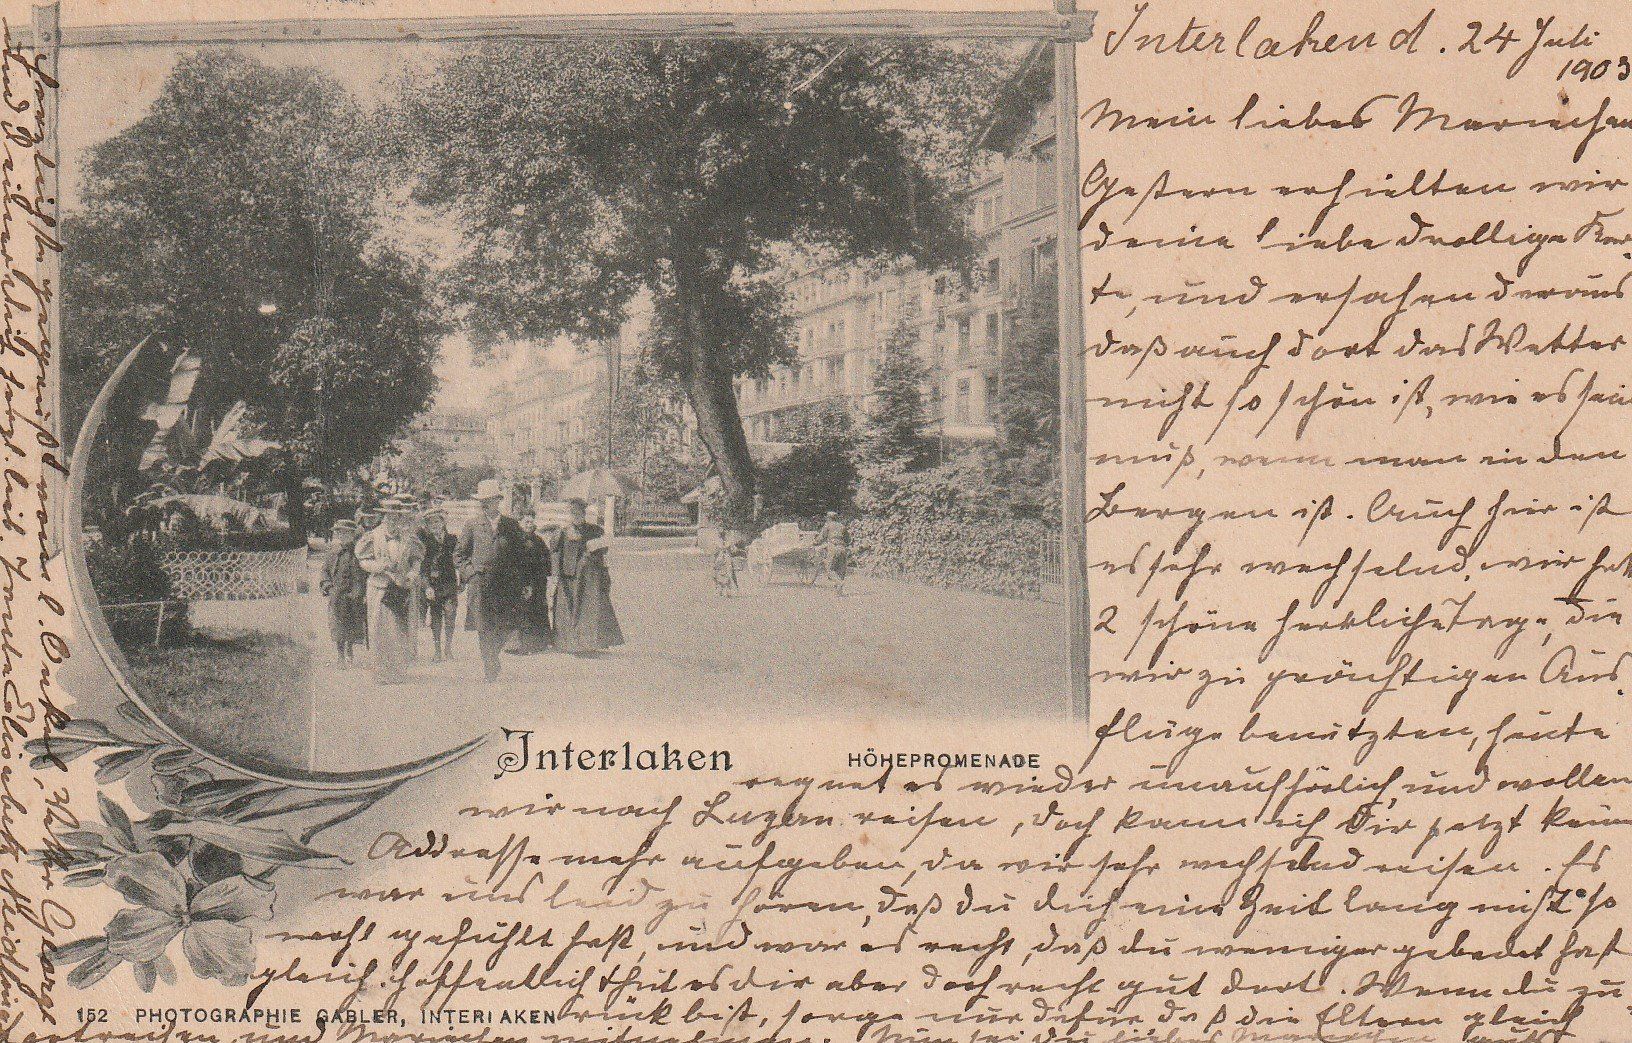 Interlaken d. 24 Juli
1903
Mein liebes Mariechen
Gestern erhielten wir
deine liebe drollige Kar-
te, und ersahen daraus
daß auch dort das Wetter
nicht so schön ist, wie es sein
muß, wenn man in den
Bergen ist. Auch hier ist
es sehr wechselnd, wir hatt
2 schöne herrliche Tage, die
wir zu prächtigen Aus-
flüge benutzten, heute
regnet es wieder unaufhörlich, und wollen
wir nach Luzern reisen, doch kann ich Dir jetzt keine
Addresse mehr aufgeben, da wir sehr wechselnd reisen. Es
war uns leid zu hören, daß du dich eine Zeit lang nicht so
wohl gefühlt hast, und war es recht, daß du weniger gebadet hast
gleich. hoffentlich thut es dir aber doch recht gut dort. Wenn du zu-
rück bist, sorge nur dafür daß die Eltern gleich
und Mariechen mitnehmen. Nun sei du liebes Mariechen
Herzlichst gegrüßt von l. Onkel, Vetter Georg
und Deiner Dich herzl. lieb. Tante Elisabeth
Interlaken
HÖHEPROMENADE
152 PHOTOGRAPHIE GABLER, INTERLAKEN